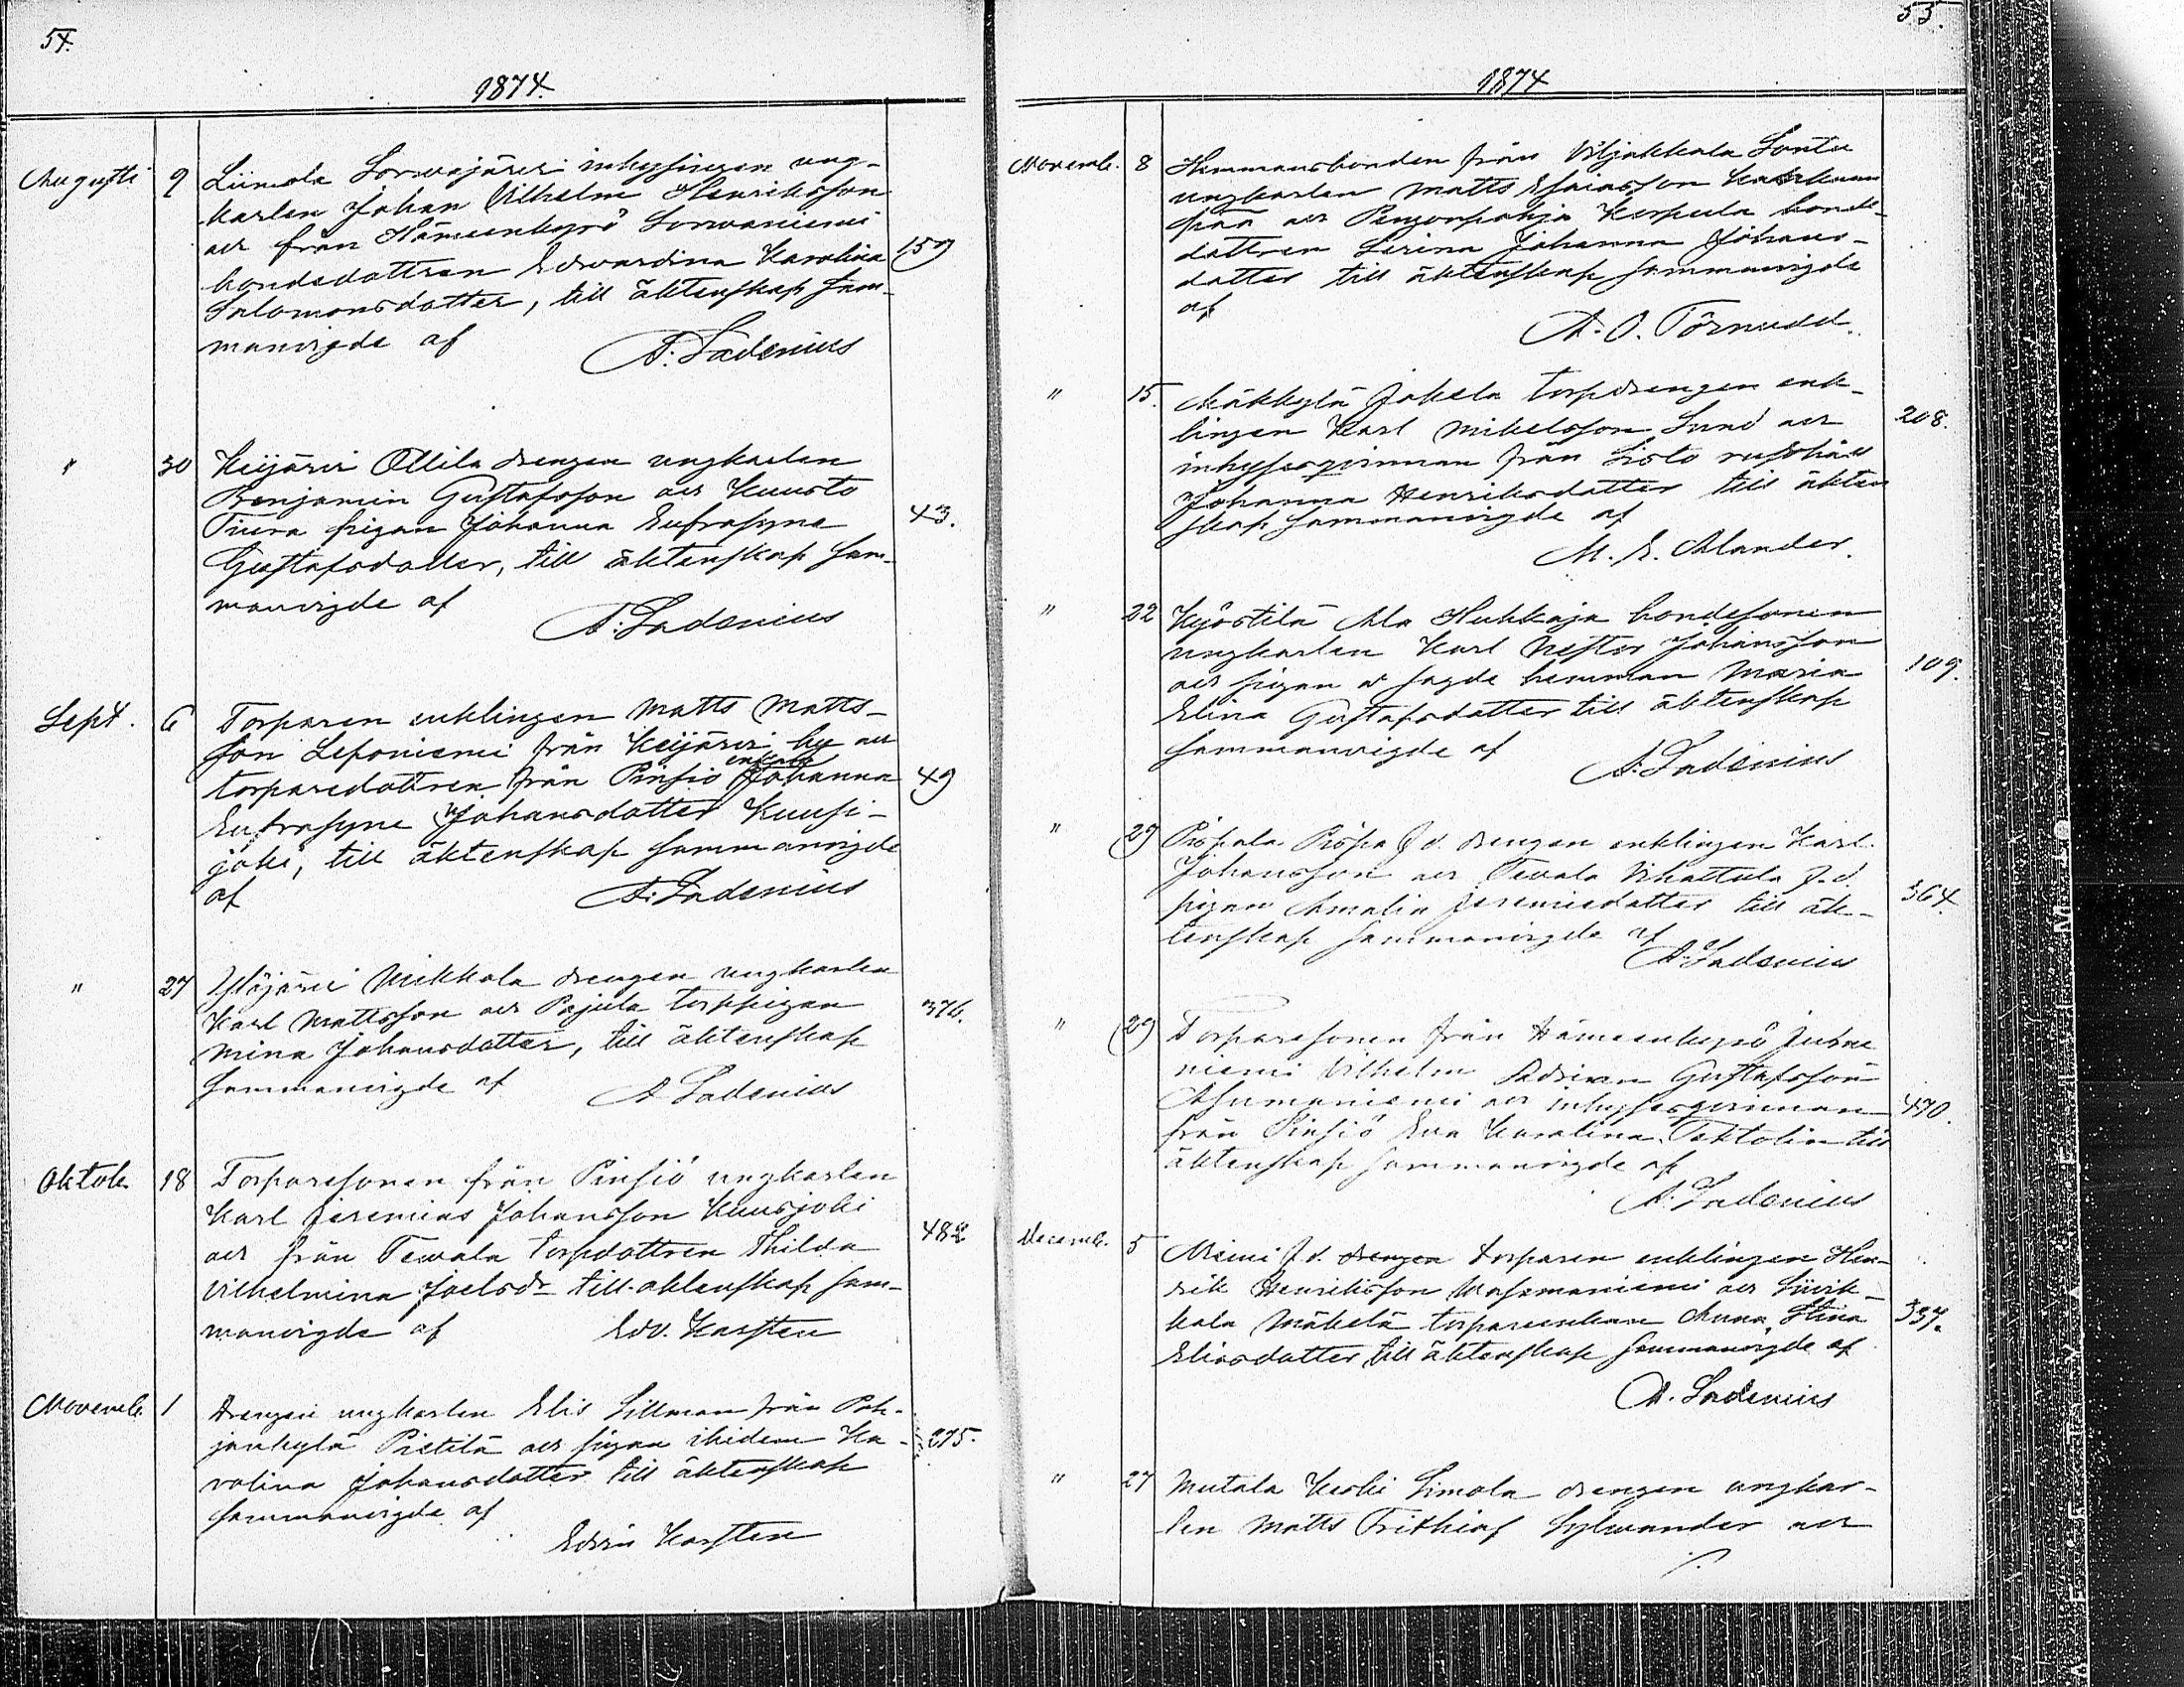 54.
1874.
Augusti 9 Liimola Sorvajärvi inhysingen ung-
karlen Johan Vilhelm Henriksson
och från Hämeenkyrö Sorvaniemi
bondedottren Edvardina Karolina 159
Salomonsdotter, till äktenskap sam-
manvigde af
A. Ladenius
" 30 Keijärvi Ollila drengen ungkarlen
Benjamin Gustafsson och Kuusto
Tiura pigan Johanna Eufrosyne 43.
Gustafsdotter, till äktenskap sam-
manvigde af
A. Ladenius
Sept. 6 Torparen enklingen Matts Matts-
son Leponiemi från Keijärvi by och
torparedottren från Pinsiö enkan Johanna 49
Eufrosyne Johansdotter Kuusi-
joki, till äktenskap sammanvigde
af A. Ladenius
" 27 Ylöjärvi Mikkola drengen ungkarlen
Karl Mattsson och Pajula torppigan 376.
Mina Johansdotter, till äktenskap
sammanvigde af A. Ladenius
Oktob. 18 Torparesonen från Pinsiö ungkarlen
Karl Jeremias Johansson Kuusjoki
och från Tevala torpdottren Thilda 482
Vilhelmina Joelsdr till äktenskap sam-
manvigde af Edv. Karsten
Novemb. 1 Drengen ungkarlen Elis Sillman från Poh-
jankylä Pietilä och pigan ibidem Ka- 275.
rolina Johansdotter till äktenskap
sammanvigde af
Edvin Karsten
55.
1874
Novemb. 8 Hemmansbonden från Viljakkala Sontu
ungkarlen Matts Esaiasson
från och Penzonpohja Kerpula bonde-
dottren Serina Johanna Johans-
dotter till äktenskap sammanvigde
af
A. O. Törnudd.
" 15. Mäkkylä Jokela torpdrengen enk-
lingen Karl Mikelsson Sund och 208.
inhysesqvinnan från Sisto rusthåll
Johanna Henriksdotter till äkten
skap sammanvigde af
M. E. Alander.
" 22 Kyöstilä Ala Huhkaja bondesonen
ungkarlen Karl Nestor Johansson
och pigan å sagde hemman Maria 109.
Elina Gustafsdotter till äktenskap
sammanvigde af
A. Ladenius
" 29 Pispala Pispa J. d. drengen enklingen Karl
Johansson och Tevala Vihattula J. d. 364.
pigan Amalia Jeremiedotter till äk-
tenskap sammanvigde af
A. Ladenius
" 29 Torparesonen från Hämeenkyrö
niemi Vilhelm Adrian Gustafsson
Asumaniemi och inhysesqvinnan 470.
från Pinsiö Eva Karolina Tektolin till
äktenskap sammanvigde af
A. Ladenius
Decemb. 5 Niemi J. d. drengen torparen enklingen Hen-
rik Henriksson Vasamaniemi och Siivik-
kala Mäkelä torpareenkan Anna Stina 337.
Eliasdotter till äktenskap sammanvigde af
A. Ladenius
" 27 Mutala Keski Simola drengen ungkar-
len Matts Frithiof Sylvander och